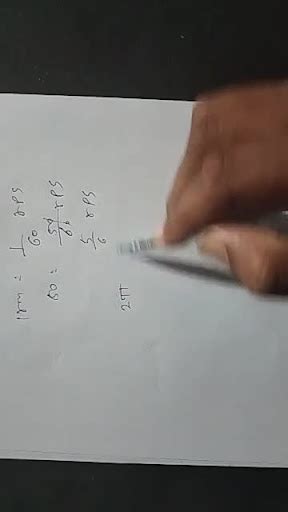 1 rpm = 1/60 rps
50 = 50/60 rps
5/6 rps
2π